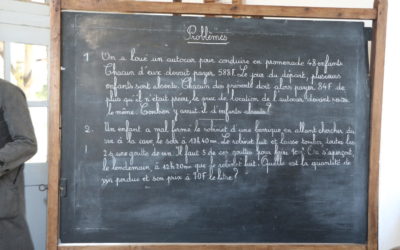 Problèmes
1 On a loué un autocar pour conduire en promenade 48 enfants.
Chacun d'eux devait payer 588F. Le jour du départ, plusieurs
enfants sont absents. Chacun des présents doit alors payer 84F de
plus qu'il n'était prévu, le prix de location de l'autocar devant rester
le même. Combien y avait-il d'enfants absents?
2. Un enfant a mal fermé le robinet d'une barrique en allant chercher du
vin à la cave, le soir à 19h40mn. Le robinet fuit et laisse tomber toutes les
2s une goutte de vin. Il faut 5 de ces gouttes pour faire 1c³. On s'aperçoit,
le lendemain, à 12h20mn que le robinet fuit. Quelle est la quantité de
vin perdue et son prix à 70F le litre?